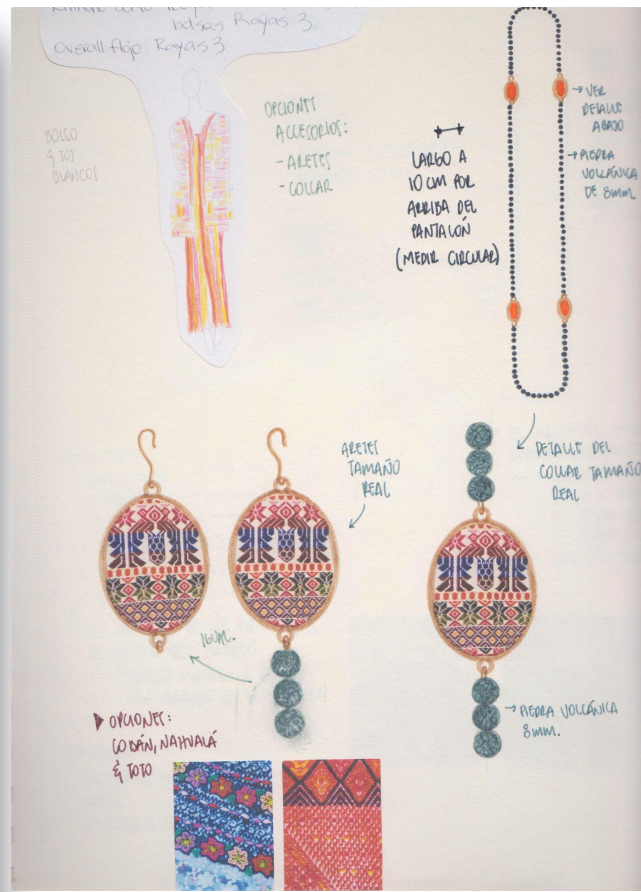 bolsas Rayas 3
Overall flojo: Rayas 3
BOLSO
& TOTO
BLANCOS
OPCIONES
ACCESORIOS:
- ARETES
- COLLAR
LARGO A
10 CM POR
ARRIBA DEL
PANTALÓN
(MEDIR CIRCULAR)
VER
DETALLE
ABAJO
PIEDRA
VOLCÁNICA
DE 8MM.
ARETES
TAMAÑO
REAL
DETALLE DEL
COLLAR TAMAÑO
REAL
IGUAL.
OPCIONES:
COBÁN, NAHUALÁ
& TOTO
PIEDRA VOLCÁNICA
8MM.